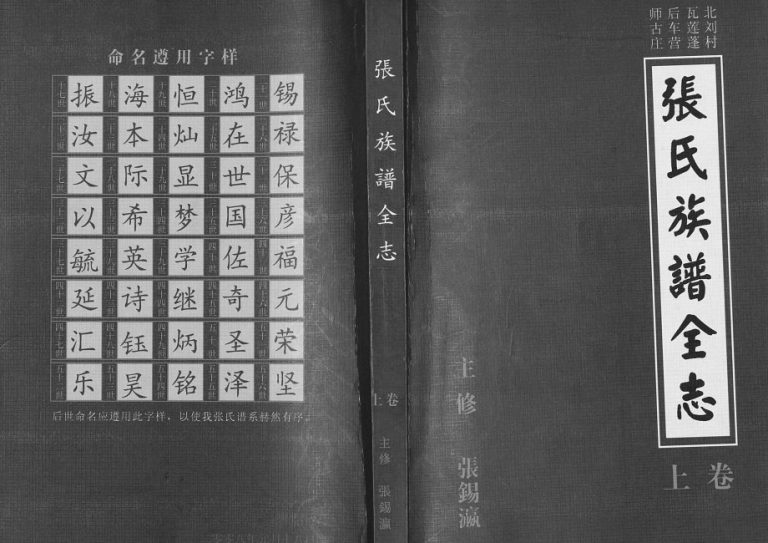 命名遵用字样
振 海 恒 鸿 锡
汝 本 灿 在 禄
文 际 显 世 保
以 希 梦 国 彦
毓 英 学 佐 福
延 诗 继 奇 元
汇 钰 炳 圣 荣
乐 昊 铭 泽 坚
后世命名应遵用此字样，以使我张氏谱系赫然有序。
張氏族譜全志
上卷
主修 張錫瀛
北刘村
瓦莲蓬
后车营
师古庄
張氏族譜全志
上卷
主修 張錫瀛